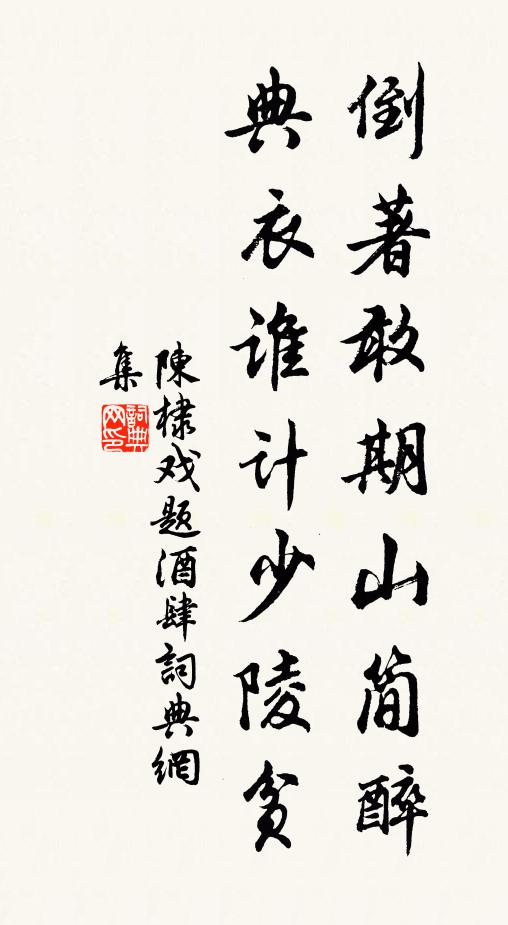 倒著敢期山简醉
典衣誰计少陵貧
陳棣戏题酒肆詞典網
集
詞典网印